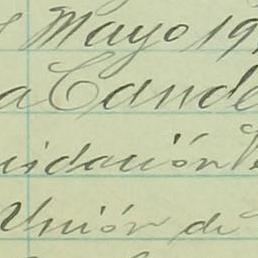 Mayo 19
a Cande
uidación
Unión de